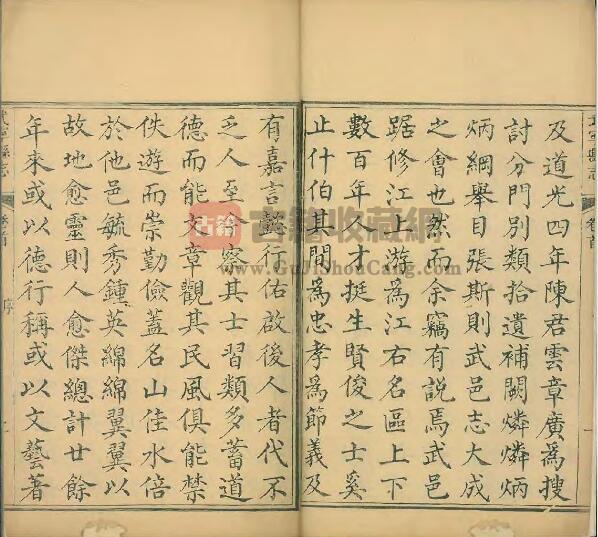 及道光四年陳君雲章廣爲搜
討分門別類拾遺補闕燐燐炳
炳綱舉目張斯則武邑志大成
之會也然而余竊有説焉武邑
踞修江上游爲江右名區上下
數百年人才挺生賢俊之士奚
止什伯其間爲忠孝爲節義及
有嘉言懿行佑啟後人者代不
乏人至於察其士習類多蓄道
德而能文章觀其民風俱能禁
佚遊而崇勤儉蓋名山佳水倍
於他邑毓秀鍾英綿綿翼翼以
故地愈靈則人愈傑總計廿餘
年來或以德行稱或以文藝著
武寧縣志
卷首
序
古籍
古籍收藏網
www.GuJiShouCang.com